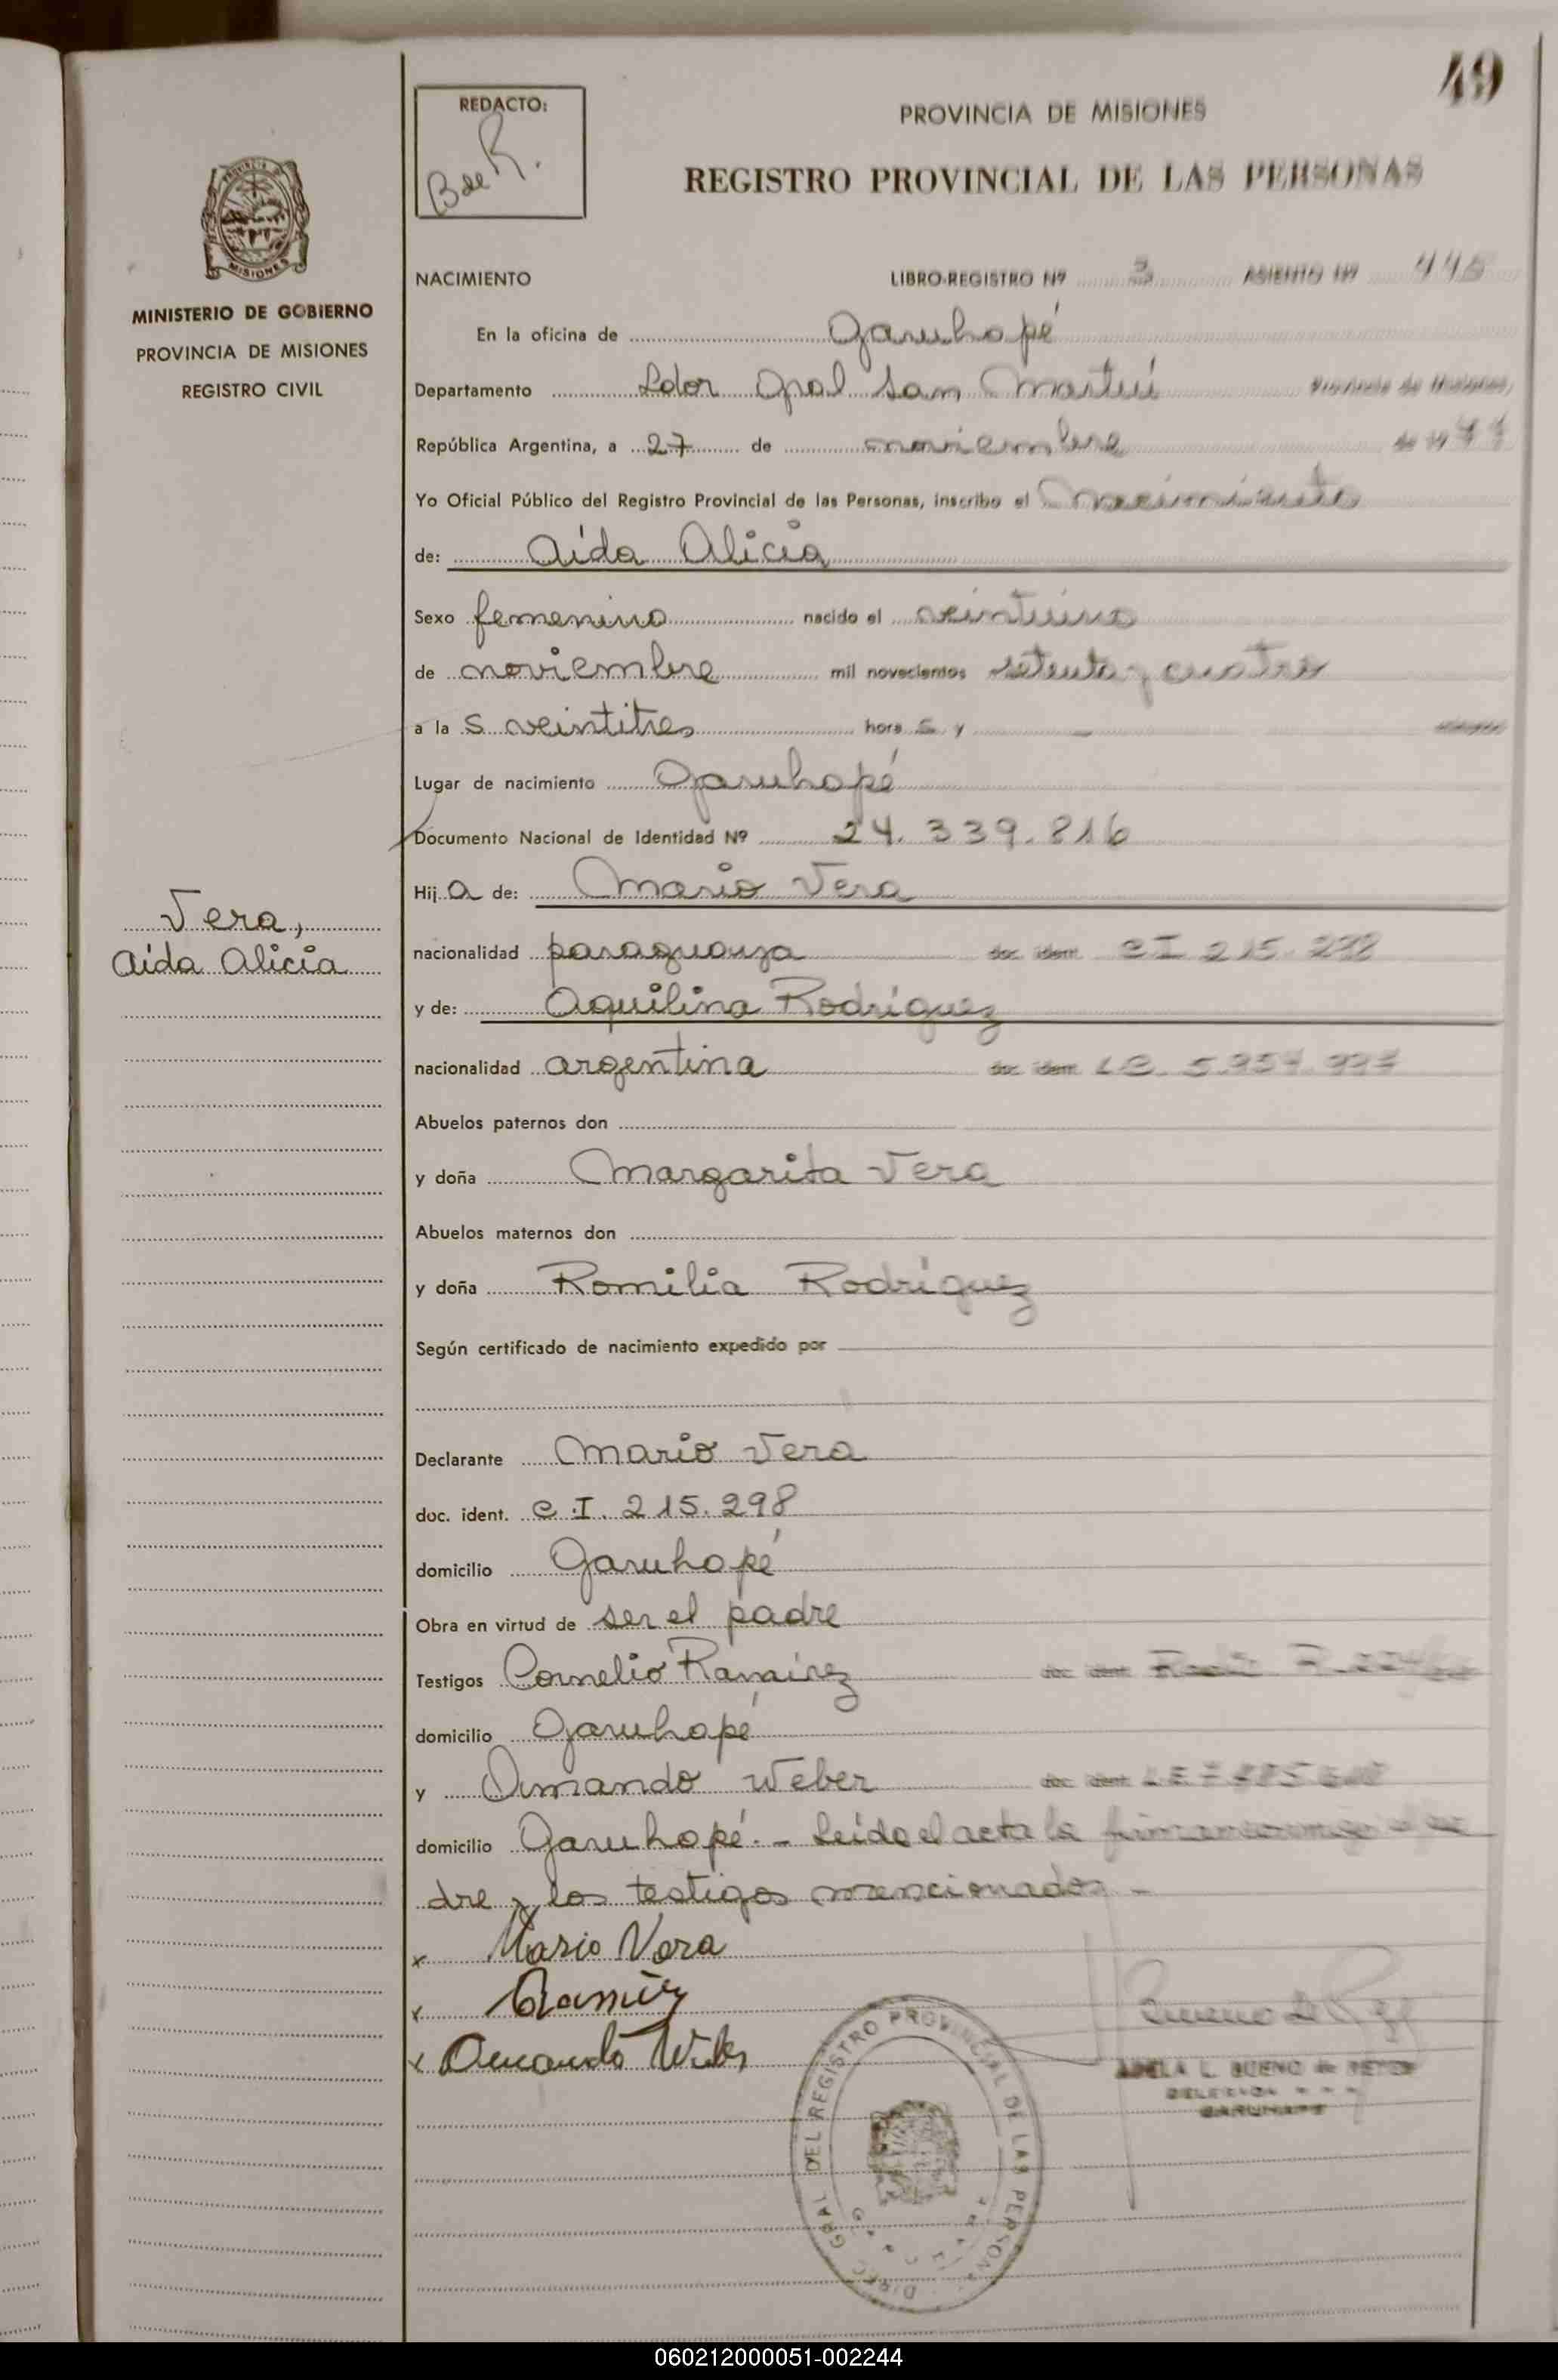 49
REDACTO:
B de R.
PROVINCIA DE MISIONES
REGISTRO PROVINCIAL DE LAS PERSONAS
MISIONES
MINISTERIO DE GOBIERNO
PROVINCIA DE MISIONES
REGISTRO CIVIL
NACIMIENTO LIBRO-REGISTRO Nº 3 ASIENTO Nº
En la oficina de Garuhapé
Departamento Ldor Gral San Martín Provincia de Misiones,
República Argentina, a 27 de noviembre de 19
Yo Oficial Público del Registro Provincial de las Personas, inscribo el nacimiento
de: Aída Alicia
Sexo femenino nacido el veintiuno
de noviembre mil novecientos setenta y cuatro
a las veintitres horas y
Lugar de nacimiento Garuhapé
Documento Nacional de Identidad Nº 24.339.816
Hija de: Mario Vera
Vera,
Aída Alicia
nacionalidad paraguaya doc. ident. C I 215.298
y de: Aquilina Rodríguez
nacionalidad argentina doc. ident.
Abuelos paternos don
y doña Margarita Vera
Abuelos maternos don
y doña Romilia Rodríguez
Según certificado de nacimiento expedido por
Declarante Mario Vera
doc. ident. C.I. 215.298
domicilio Garuhapé
Obra en virtud de ser el padre
Testigos Cornelio Ramírez doc. ident.
domicilio Garuhapé
y Armando Weber doc. ident. L.E.
domicilio Garuhapé.- Leído el acta la firman conmigo el pa
dre y los testigos mencionados.-
x Mario Vera
x Ramírez
x Armando Weber
ADELA L. BUENO de REYES
GARUHAPE
DIREC. GRAL DEL REGISTRO PROVINCIAL DE LAS PERSONAS
060212000051-002244